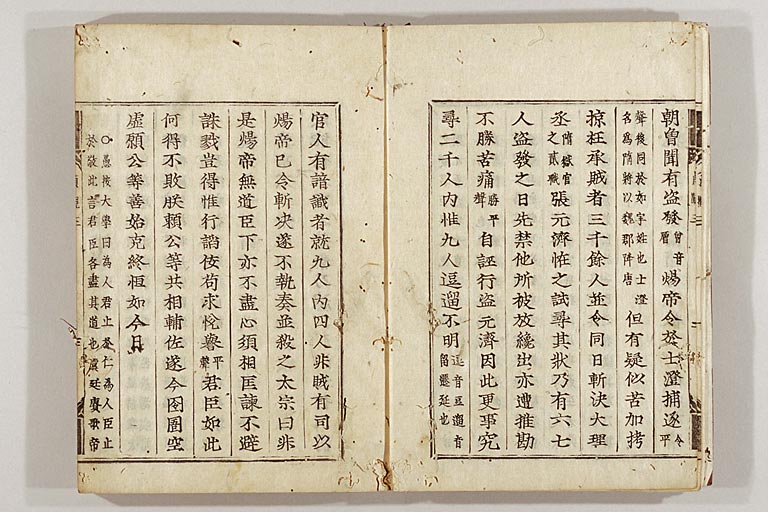 朝曾聞有盜發曾音層煬帝令扵士澄捕逐令平
聲後同扵如字姓也士澄名為隋將以魏郡降唐但有疑似苦加拷
掠枉承賊者三千餘人並令同日斬決大理
丞隋獄官之貳職張元濟恠之試尋其狀乃有六七
人盜發之日先禁他所被放纔出亦遭推勘
不勝苦痛勝平聲自誣行盜元濟因此更事究
尋二千人內惟九人逗遛不明逗音豆遛音留遷延也
官人有諳識者就九人內四人非賊有司以
煬帝已令斬决遂不執奏並殺之太宗曰非
是煬帝無道臣下亦不盡心須相匡諫不避
誅戮豈得惟行諂佞苟求悅譽平聲君臣如此
何得不敗朕賴公等共相輔佐遂令囹圄空
虛願公等善始克終恒如今日
○愚按大學曰為人君止扵仁為人臣止
扵敬此言君臣各盡其道也虞廷賡歌帝